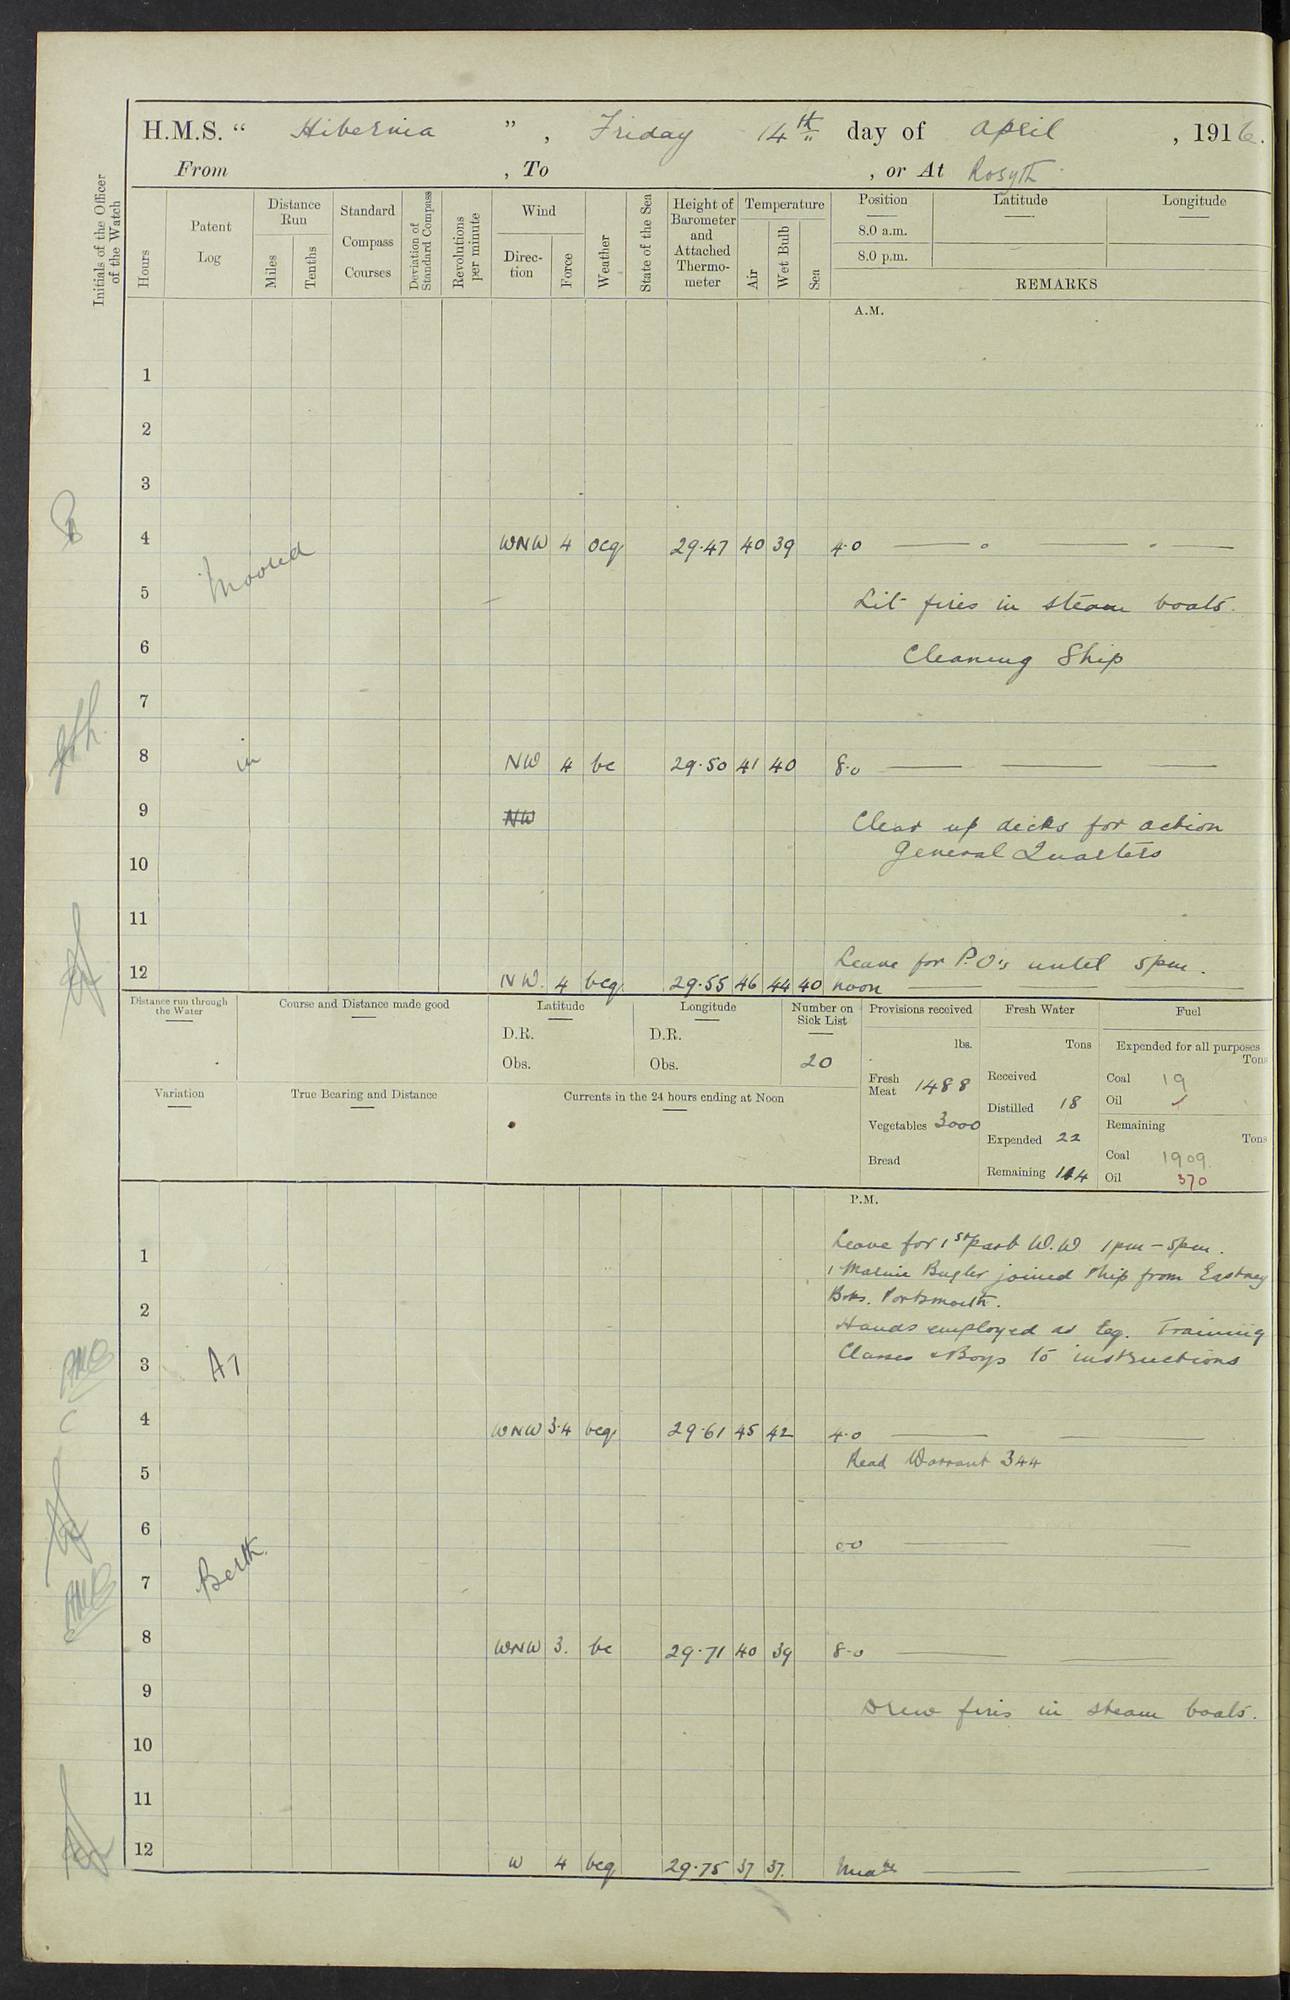 H.M.S. " Hibernia ", Friday 14th day of April, 1916.
From , To , or At Rosyth
Initials of the Officer of the Watch
Hours
Patent Log
Distance Run
Miles
Tenths
Standard Compass Courses
Deviation of Standard Compass
Revolutions per minute
Wind
Direction
Force
Weather
State of the Sea
Height of Barometer and Attached Thermometer
Temperature
Air
Wet Bulb
Sea
Position
8.0 a.m.
8.0 p.m.
Latitude
Longitude
REMARKS
A.M.
1
2
3
4 WNW 4 ocq 29.47 40 39 4.0
Moored
5 Lit fires in steam boats.
6 Cleaning Ship
7
8 in NW 4 bc 29.50 41 40 8.0
9 NW Clear up decks for action
10 General Quarters
11
Leave for P.O's until 5pm.
12 NW. 4 bcq 29.55 46 44 40 noon
Distance run through the Water
Course and Distance made good
Latitude
D.R.
Obs.
Longitude
D.R.
Obs.
Number on Sick List
20
Provisions received
lbs.
Fresh Meat 1488
Vegetables 3000
Bread
Fresh Water
Tons
Received
Distilled 18
Expended 22
Remaining 114
Fuel
Expended for all purposes
Tons
Coal 19
Oil
Remaining
Tons
Coal 1909
Oil 370
Variation
True Bearing and Distance
Currents in the 24 hours ending at Noon
P.M.
1 Leave for 1st part W.W 1pm – 5pm.
1 Marine Bugler joined ship from Eastney
2 Bks. Portsmouth.
Hands employed as req. Training
3 At Classes & Boys to instructions
4 WNW 3.4 bcq 29.61 45 42 4.0
5 Read Warrant 344
6
7 Berth.
8 WNW 3. bc 29.71 40 39 8.0
9 Drew fires in steam boats.
10
11
12 W 4 bcq 29.75 37 37.